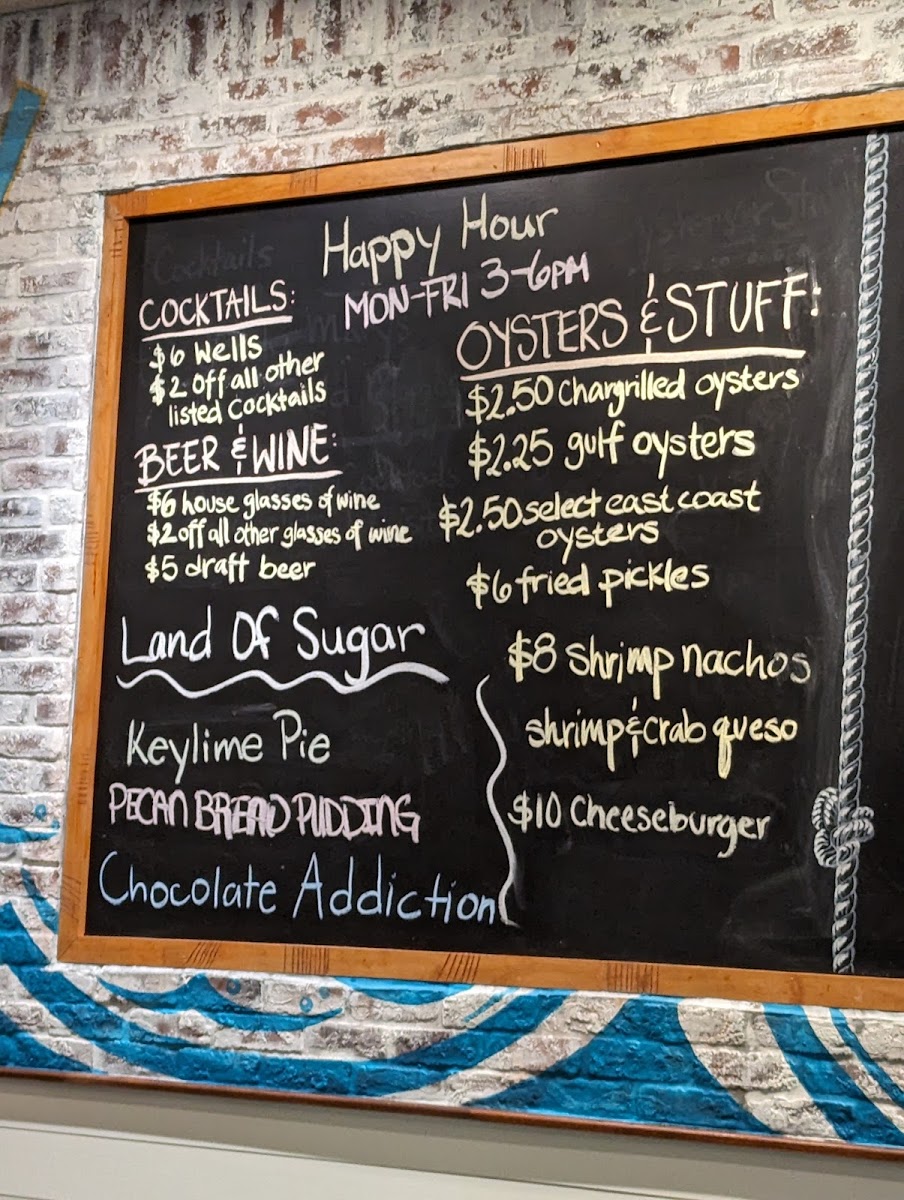 Happy Hour
MON-FRI 3-6PM
COCKTAILS:
$6 Wells
$2 off all other
listed cocktails
BEER & WINE:
$6 house glasses of wine
$2 off all other glasses of wine
$5 draft beer
Land Of Sugar
Keylime Pie
PECAN BREAD PUDDING
Chocolate Addiction
OYSTERS & STUFF:
$2.50 Chargrilled oysters
$2.25 gulf oysters
$2.50 select east coast
oysters
$6 fried pickles
$8 shrimp nachos
shrimp & crab queso
$10 Cheeseburger
Cocktails